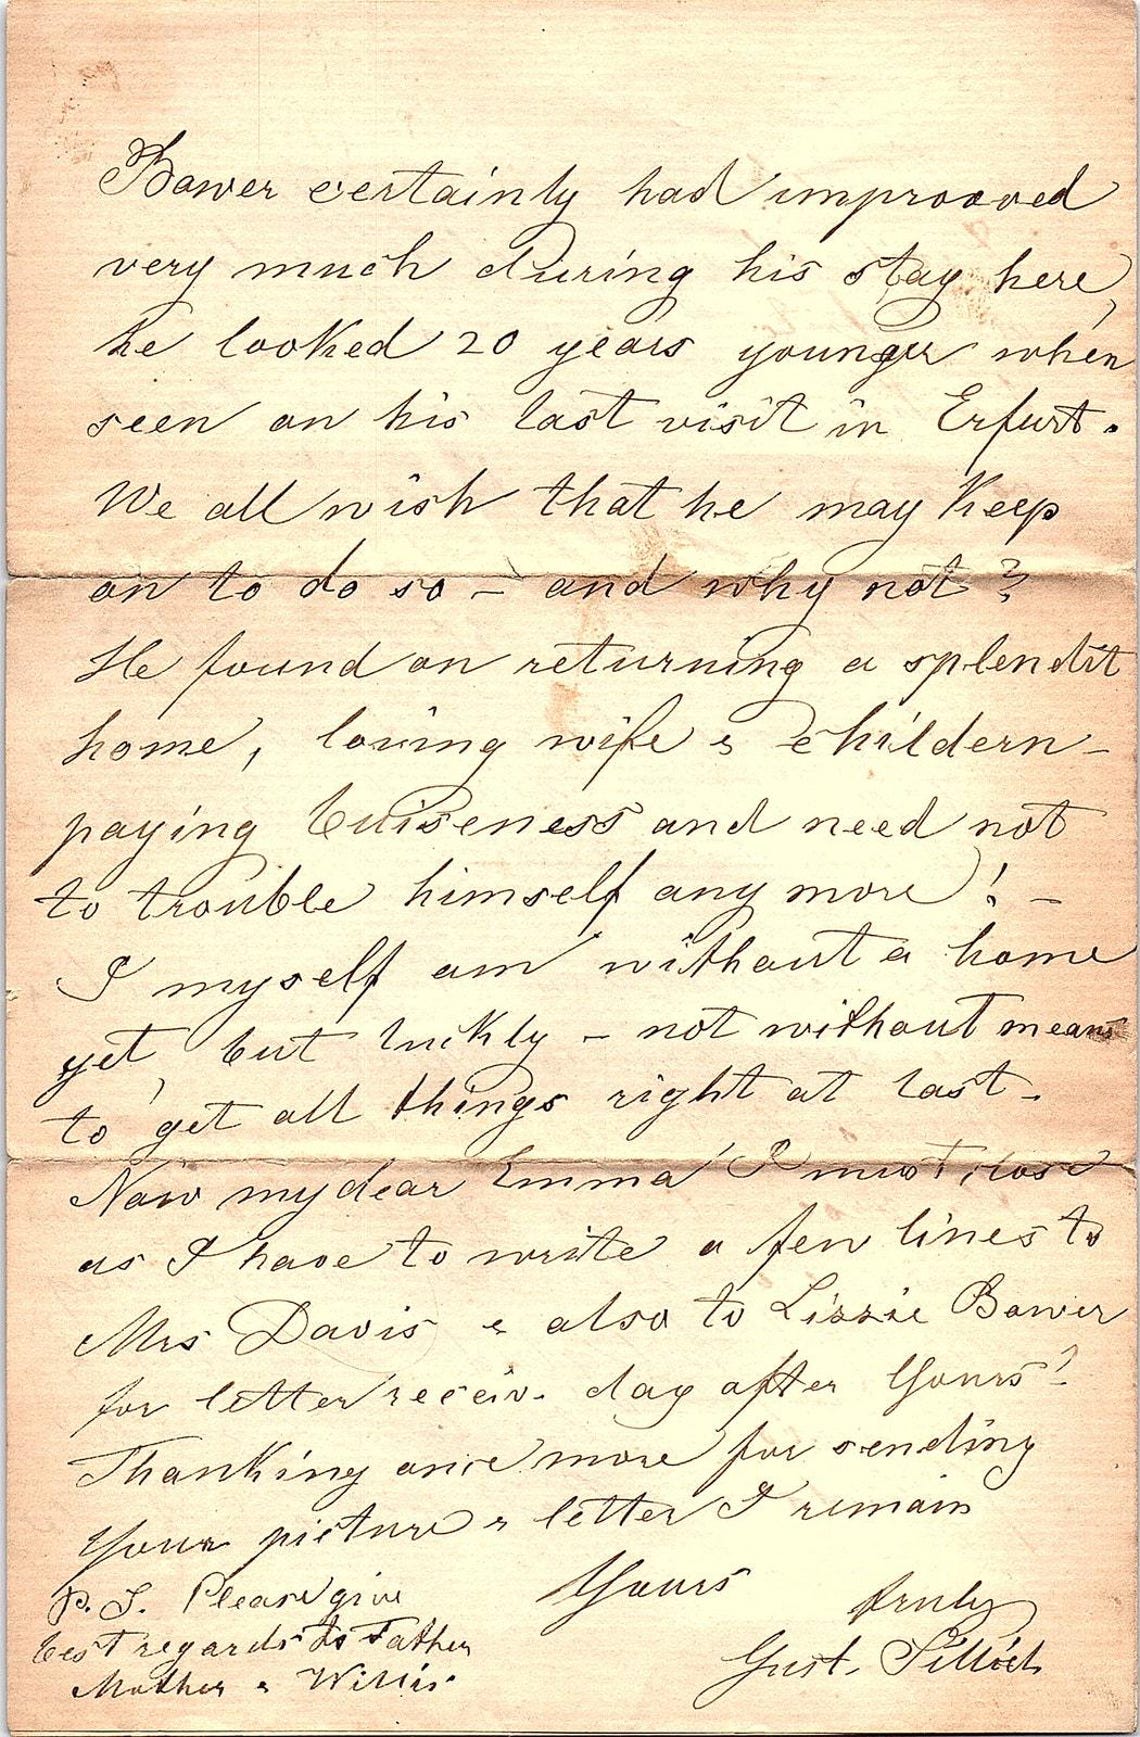 Bower certainly had improoved
very much during his stay here,
he looked 20 years younger when
seen on his last visit in Erfurt.
We all wish that he may Keep
on to do so – and why not?
He found on returning a splendit
home, loving wife & childern –
paying buiseness and need not
to trouble himself any more! –
I myself am without a home
yet, but luckly – not without means
to get all things right at last –
Now my dear Emma I must close
as I have to write a few lines to
Mrs Davis & also to Lizzie Bower
for letter receiv. day after Yours!
Thanking once more for sending
Your picture & letter I remain
Yours truly
Gust.
P.S. Please give
best regards to Father
Mother & Willis.